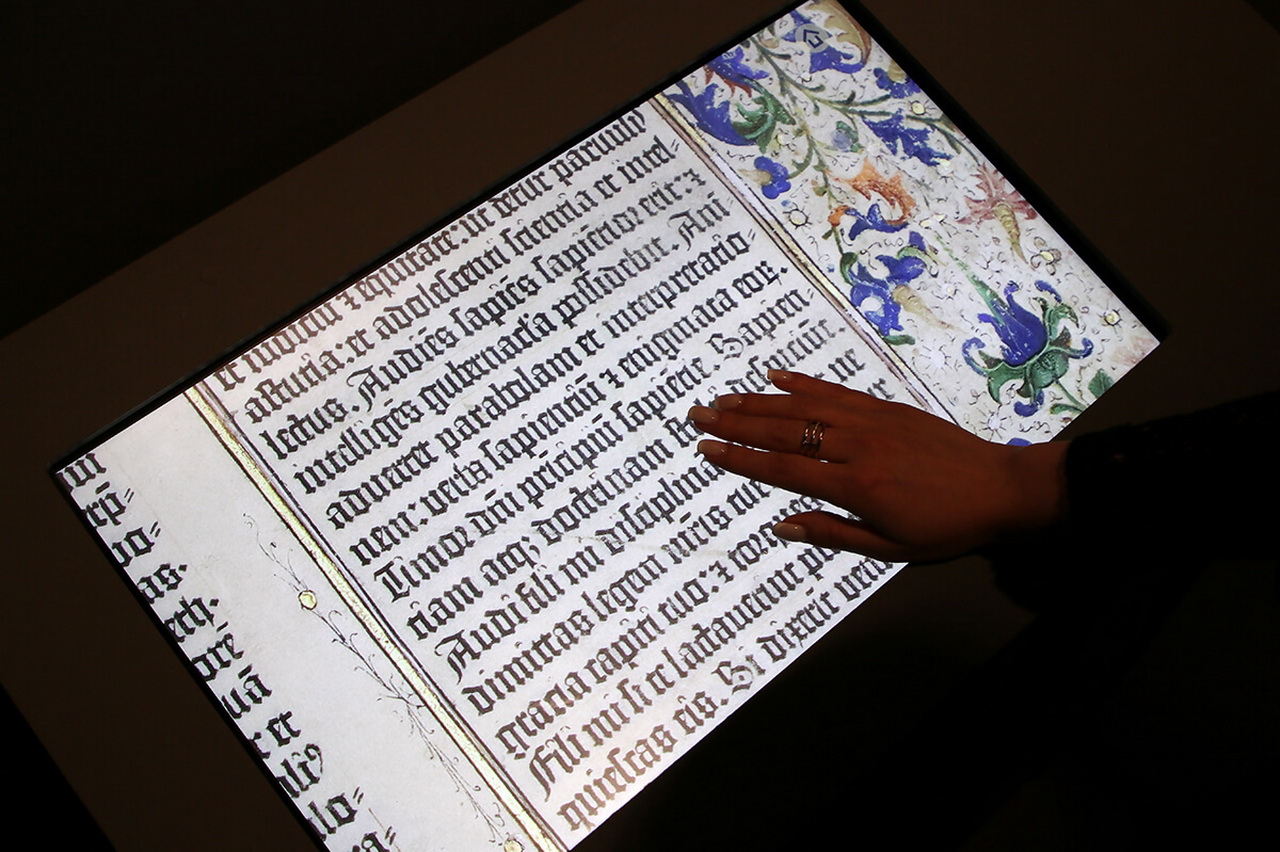 io=
as.
et
lo=
et iudiciū ⁊ equitatē: ut detur
astutia: et adolescenti scientia et intel=
lectus. Audiēs sapiēs sapiētior erit: ⁊
intelligēs gubernacła possidebit. Aniī
aduertet parabolam et interpretatio=
nem: verba sapientiū ⁊ enigmata eoꝝ.
Timor dn̄i principiū sapiētie. Sapien=
tiam atqꝫ doctrinam despiciūt.
Audi fili mi disciplina ne
dimittas legem mr̄is tue
gracia capiti tuo: ⁊ torques
Fili mi si te lactauerint
quiescas eis. Si dixerit